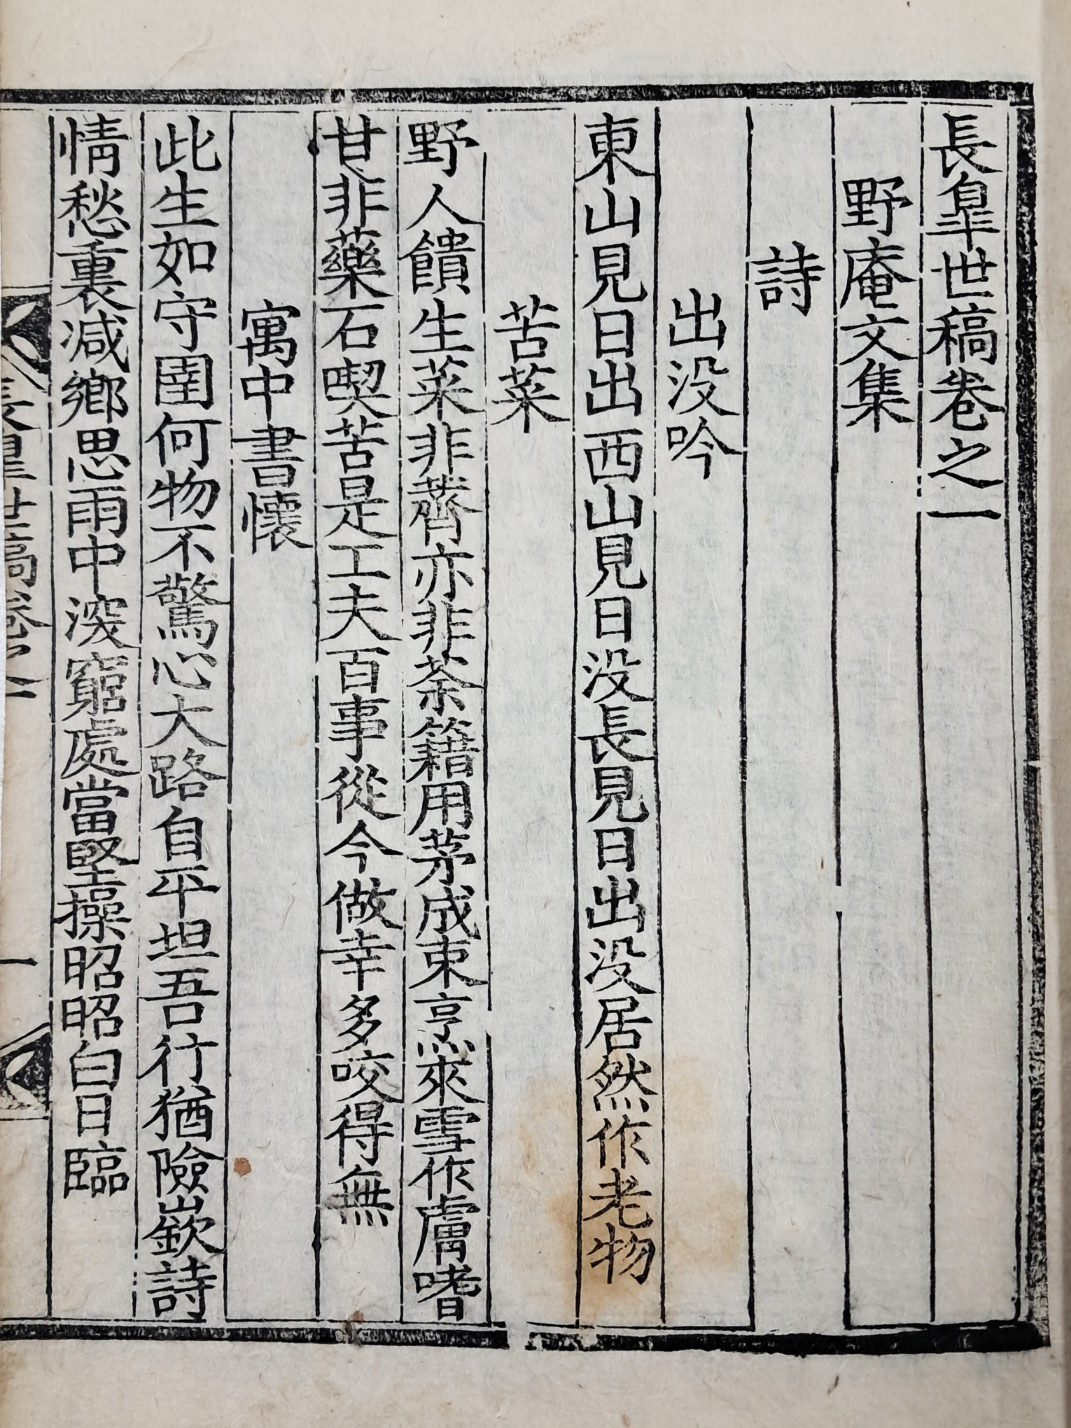 長皐世稿卷之一
野庵文集
詩
出没吟
東山見日出西山見日没長見日出没居然作老物
苦菜
野人饋生菜非薺亦非荼籍用茅成束烹來雪作膚嗜
甘非藥石喫苦是工夫百事從今做幸多咬得無
寓中書懷
此生如守圉何物不驚心大路自平坦吾行猶險嶔詩
情愁裏减鄉思雨中深窮處當堅操昭昭白日臨
長皐世稿卷之一
一